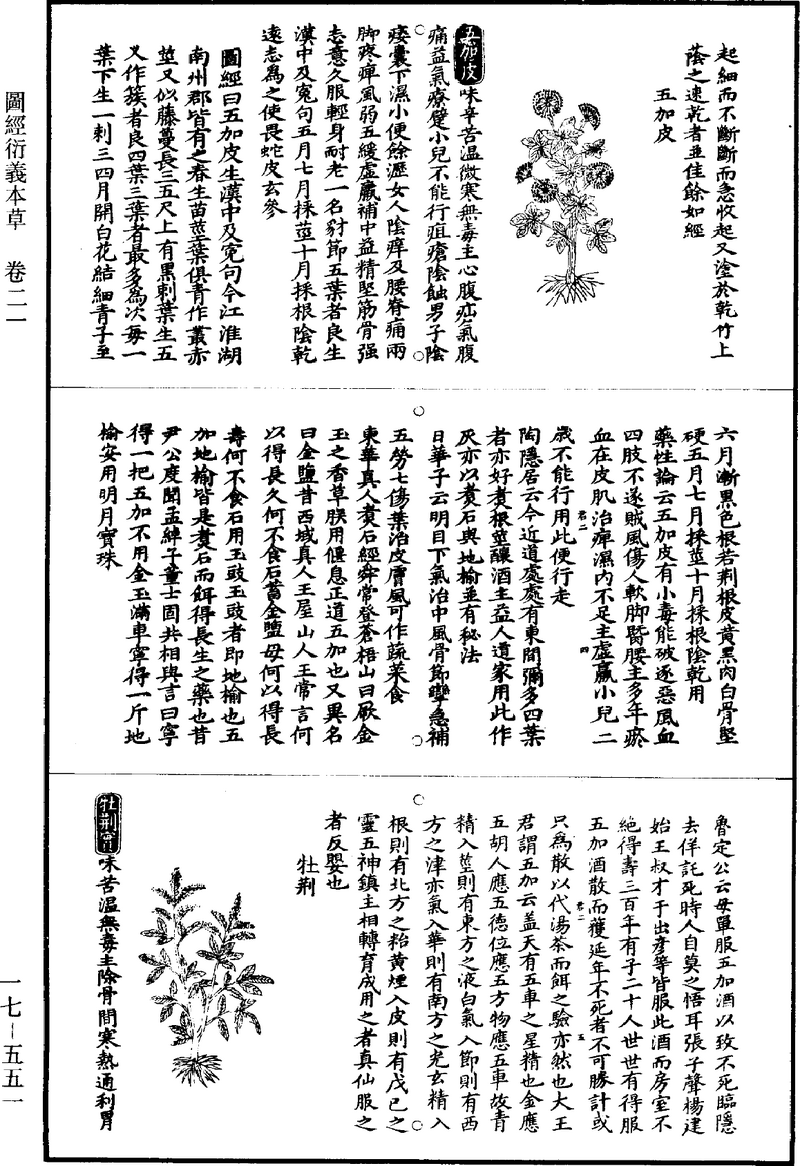 圖經衍義本草　卷二一
一七-五五一
起細而不斷斷而急收起又塗於乾竹上
蔭之速乾者並佳餘如經
五加皮
五加皮味辛苦溫微寒無毒主心腹疝氣腹
痛益氣療躄小兒不能行疽瘡陰蝕男子陰
痿囊下濕小便餘瀝女人陰痒及腰脊痛兩
脚疼痺風弱五緩虛羸補中益精堅筋骨强
志意久服輕身耐老一名豺節五葉者良生
漢中及冤句五月七月採莖十月採根陰乾
逺志為之使畏蛇皮玄參
圖經曰五加皮生漢中及冤句今江淮湖
南州郡皆有之春生苗莖葉俱青作叢赤
莖又似藤蔓長三五尺上有黑刺葉生五
乂作簇者良四葉三葉者最多為次每一
葉下生一刺三四月開白花結細青子至
六月漸黑色根若荆根皮黃黑肉白骨堅
硬五月七月採莖十月採根陰乾用
藥性論云五加皮有小毒能破逐惡風血
四肢不遂賊風傷人軟脚䏶腰主多年瘀
血在皮肌治痺濕內不足主虛羸小兒二
歲不能行用此便行走
陶隱居云今近道處處有東間彌多四葉
者亦好煑根莖釀酒主益人道家用此作
灰亦以煑石與地榆並有秘法
日華子云明目下氣治中風骨節攣急補
五勞七傷葉治皮膚風可作蔬菜食
東華真人煑石經舜常登蒼梧山曰厥金
玉之香草朕用偃息正道五加也又異名
曰金鹽昔西域真人王屋山人王常言何
以得長久何不食石蓄金鹽母何以得長
壽何不食石用玉豉玉豉者即地榆也五
加地榆皆是煑石而餌得長生之藥也昔
尹公度聞孟綽子董士固共相與言曰寧
得一把五加不用金玉滿車寧得一斤地
榆安用明月寶珠
魯定公云母單服五加酒以致不死臨隱
去佯託死時人自莫之悟耳張子聲楊建
始王叔才于出彥等皆服此酒而房室不
絕得壽三百年有子二十人世世有得服
五加酒散而獲延年不死者不可勝計或
只為散以代湯茶而餌之驗亦然也大王
君謂五加云盖天有五車之星精也金應
五胡人應五德位應五方物應五車故青
精入莖則有東方之液白氣入節則有西
方之津赤氣入華則有南方之光玄精入
根則有北方之粘黃煙入皮則有戊已之
靈五神鎮主相轉育成用之者真仙服之
者反嬰也
牡荆
牡荆實味苦溫無毒主除骨間寒熱通利胃